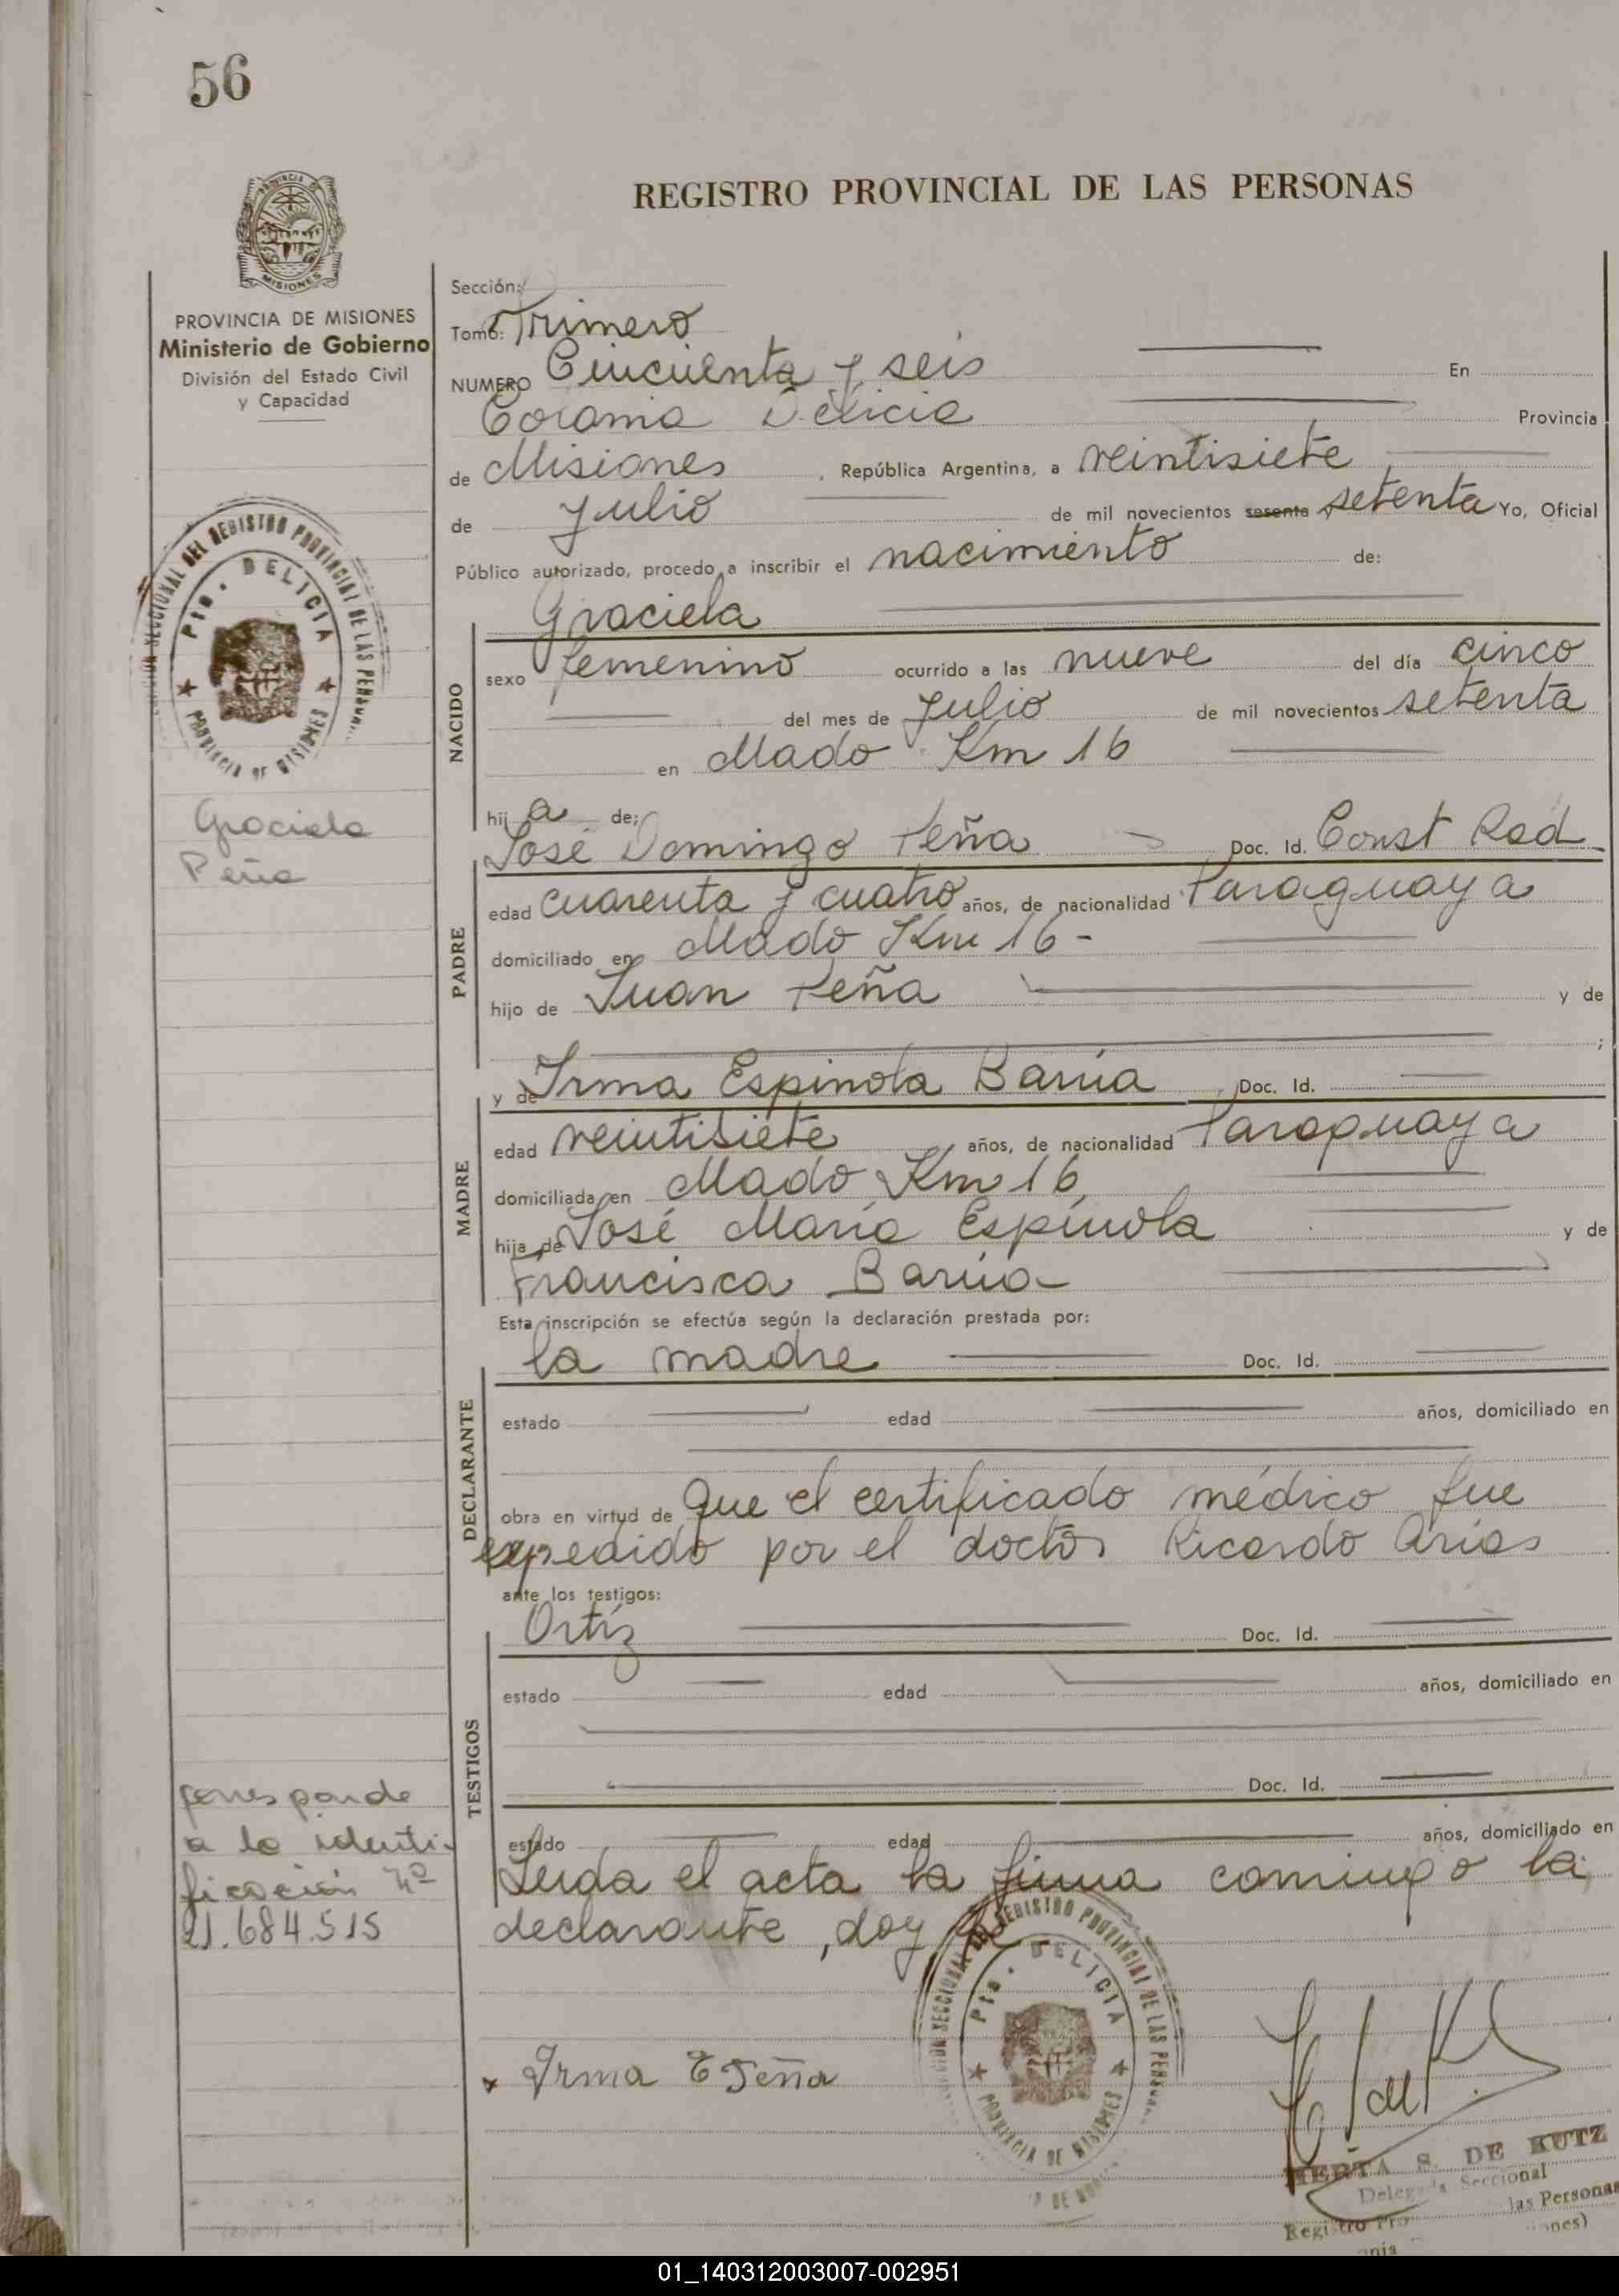 56
REGISTRO PROVINCIAL DE LAS PERSONAS
PROVINCIA DE MISIONES
Ministerio de Gobierno
División del Estado Civil
y Capacidad
Sección:
Tomo: Primero
NUMERO Cincuenta y seis En
Colonia Delicia Provincia
de Misiones, República Argentina, a veintisiete
de Julio de mil novecientos sesenta y setenta Yo, Oficial
Público autorizado, procedo a inscribir el nacimiento de:
Graciela
NACIDO
sexo femenino ocurrido a las nueve del día cinco
del mes de Julio de mil novecientos setenta
en Mado Km 16
hij a de:
José Domingo Peña Doc. Id. Const Rad
PADRE
edad cuarenta y cuatro años, de nacionalidad Paraguaya
domiciliado en Mado Km 16 -
hijo de Juan Peña y de
;
y de Irma Espinola Barúa Doc. Id.
MADRE
edad veintisiete años, de nacionalidad Paraguaya
domiciliada en Mado Km 16
hija de José María Espínola y de
Francisca Barúa
Esta inscripción se efectúa según la declaración prestada por:
la madre Doc. Id.
DECLARANTE
estado edad años, domiciliado en
obra en virtud de que el certificado médico fue
expedido por el doctor Ricardo Arias
ante los testigos:
Ortíz Doc. Id.
TESTIGOS
estado edad años, domiciliado en
Doc. Id.
estado edad años, domiciliado en
Leida el acta la firma conmigo la
declarante, doy fe
Irma E Peña
HERTA S. DE KUTZ
Delegada Seccional
Registro las Personas
DEL REGISTRO PROVINCIAL DE LAS
Pto. DELICIA
PROVINCIA DE MISIONES
Graciela
Peña
corresponde
a la identi-
ficación Nº
21.684.515
SECCIONAL DEL REGISTRO PROVINCIAL DE LAS
Pto. DELICIA
PROVINCIA DE MISIONES
01_140312003007-002951